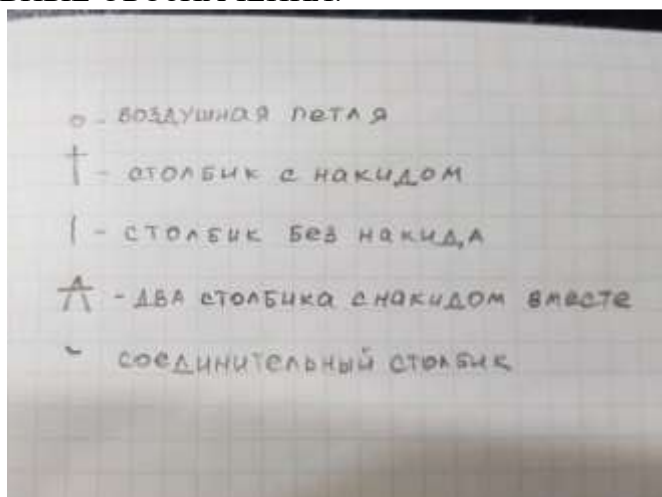 о - воздушная петля
† - столбик с накидом
| - столбик без накида
- два столбика с накидом вместе
соединительный столбик